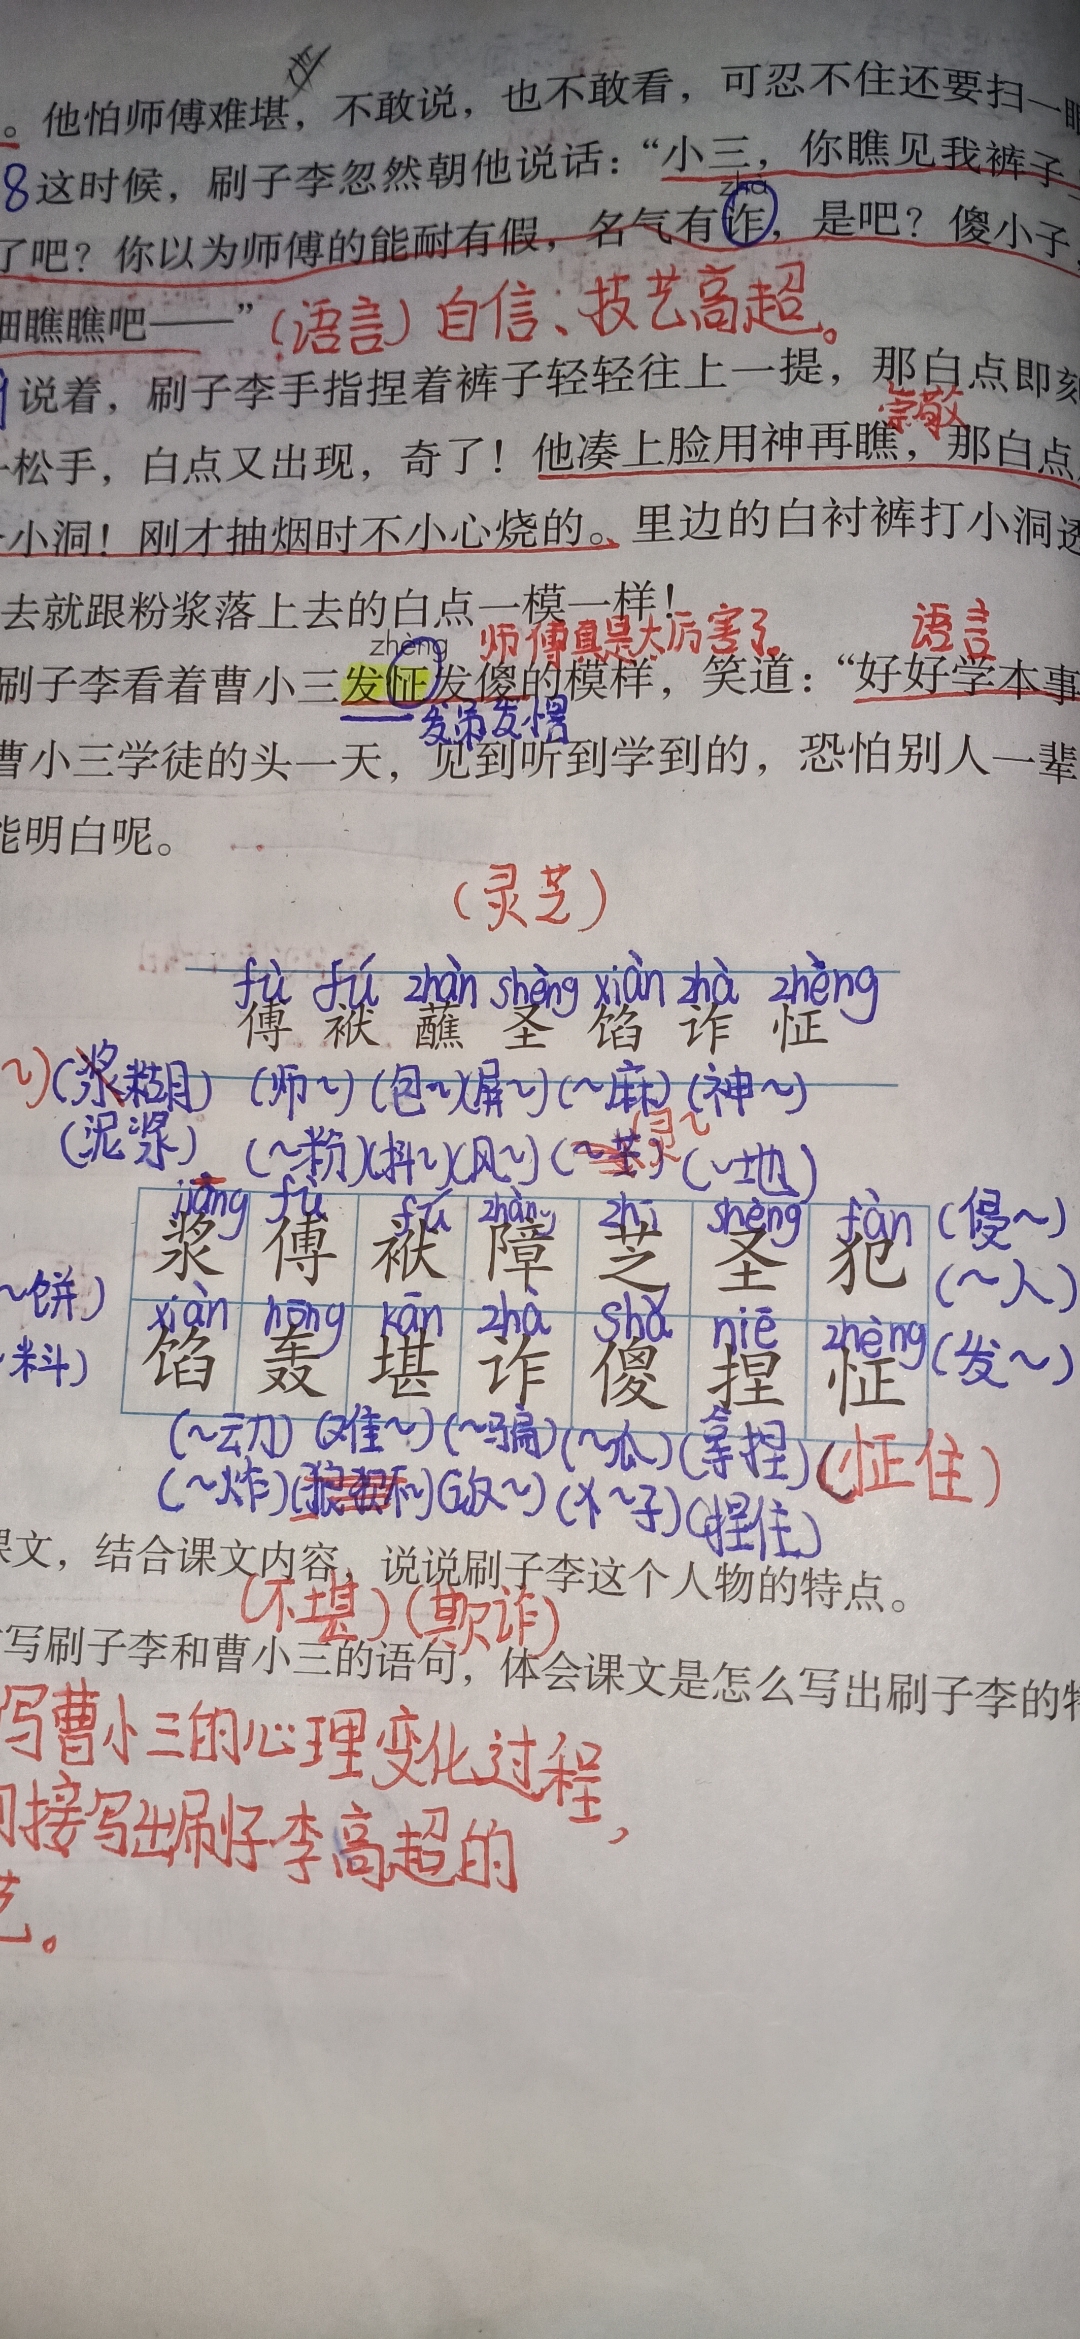 。他怕师傅难堪，不敢说，也不敢看，可忍不住还要扫一眼
8 这时候，刷子李忽然朝他说话：“小三，你瞧见我裤子
zhà
了吧？你以为师傅的能耐有假，名气有诈，是吧？傻小子，
细瞧瞧吧——”（语言）自信、技艺高超。
说着，刷子李手指捏着裤子轻轻往上一提，那白点即刻
崇敬
松手，白点又出现，奇了！他凑上脸用神再瞧，那白点
小洞！刚才抽烟时不小心烧的。里边的白衬裤打小洞透
去就跟粉浆落上去的白点一模一样！
zhèng 师傅真是太厉害了。 语言
刷子李看着曹小三发怔发傻的模样，笑道：“好好学本事
发呆发愣
曹小三学徒的头一天，见到听到学到的，恐怕别人一辈
能明白呢。
（灵芝）
fù fú zhàn shèng xiàn zhà zhèng
傅 袱 蘸 圣 馅 诈 怔
~)(浆糊) (师~) (包~)(屏~)(~麻)(神~)
(泥浆) (~粉)(抖~)(风~)(~芸)(~地)
jiāng fù fú zhàng zhī shèng fàn (侵~)
浆 傅 袱 障 芝 圣 犯 (~人)
~饼)
xiàn hōng kān zhà shǎ niē zhèng
馅 轰 堪 诈 傻 捏 怔 (发~)
料)
(~动) (难~)(~骗)(~瓜)(拿捏)(怔住)
(~炸) (敲~)(~子)(捏住)
课文，结合课文内容，说说刷子李这个人物的特点。
(不堪)(欺诈)
写刷子李和曹小三的语句，体会课文是怎么写出刷子李的特
写曹小三的心理变化过程，
间接写出刷子李高超的
艺。